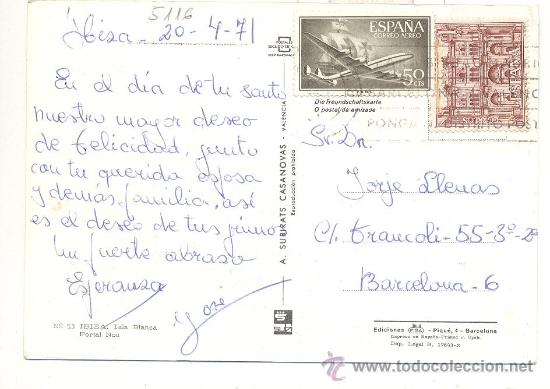 5116
Ibiza - 20-4-71
En el día de tu santo
nuestro mayor deseo
de felicidad, junto
con tu querida esposa
y demás familia, así
es el deseo de tus primos
Un fuerte abraso
Esperanza
José
Nº 53 IBIZA. Isla Blanca
Portal Nou
A. SUBIRATS CASANOVAS - VALENCIA
Reproducción prohibida
ESPAÑA
CORREO AEREO
50
CTS
ESPAÑA
Die Freundschaftskarte
O postal de amizade
PONGA
Sr. Dn.
Jorje Llenas
C/. Francolí - 55-3º-2ª
Barcelona - 6
Ediciones - Piqué, 4 - Barcelona
Impreso en España-Printed in Spain
todocoleccion.net